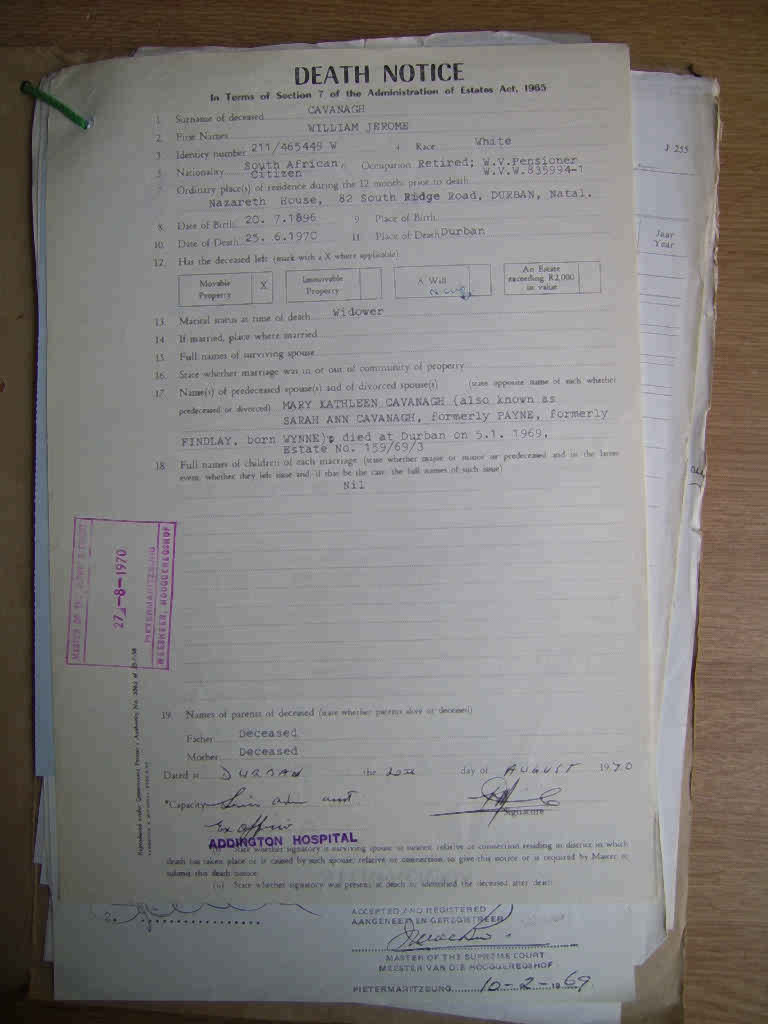 DEATH NOTICE
In Terms of Section 7 of the Administration of Estates Act, 1965
1. Surname of deceased CAVANAGH
2. First Names WILLIAM JEROME
3. Identity number 211/465449 W 4. Race White
5. Nationality South African Citizen Occupation Retired; W.V.Pensioner
W.V.W.835994-1
7. Ordinary place(s) of residence during the 12 months prior to death
Nazareth House, 82 South Ridge Road, DURBAN, Natal.
8. Date of Birth 20. 7.1896 9. Place of Birth
10. Date of Death 25. 6.1970 11. Place of Death Durban
12. Has the deceased left (mark with a X where applicable)
Movable Property X Immovable Property A Will An Estate exceeding R2,000 in value
13. Marital status at time of death Widower
14. If married, place where married
15. Full names of surviving spouse
16. State whether marriage was in or out of community of property
17. Name(s) of predeceased spouse(s) and of divorced spouse(s) (state opposite name of each whether
predeceased or divorced) MARY KATHLEEN CAVANAGH (also known as
SARAH ANN CAVANAGH, formerly PAYNE, formerly
FINDLAY, born WYNNE) died at Durban on 5.1. 1969,
Estate No. 159/69/3
18. Full names of children of each marriage (state whether major or minor or predeceased and in the latter
event, whether they left issue and if that be the case the full names of such issue)
Nil
27-8-1970
PIETERMARITZBURG
MEESTER, HOOGGEREGSHOF
19. Names of parents of deceased (state whether parents alive or deceased)
Father Deceased
Mother Deceased
Dated at DURBAN the 20th day of AUGUST 1970
*Capacity
Signature
Ex officio
ADDINGTON HOSPITAL
(i) State whether signatory is surviving spouse or nearest relative or connection residing in district in which
death has taken place or is caused by such spouse, relative or connection, to give this notice or is required by Master to
submit this death notice
(ii) State whether signatory was present at death or identified the deceased after death
ACCEPTED AND REGISTERED
AANGENEEM EN GEREGISTREER
MASTER OF THE SUPREME COURT
MEESTER VAN DIE HOOGGEREGSHOF
PIETERMARITZBURG 10-2-1969
J 255
Jaar
Year